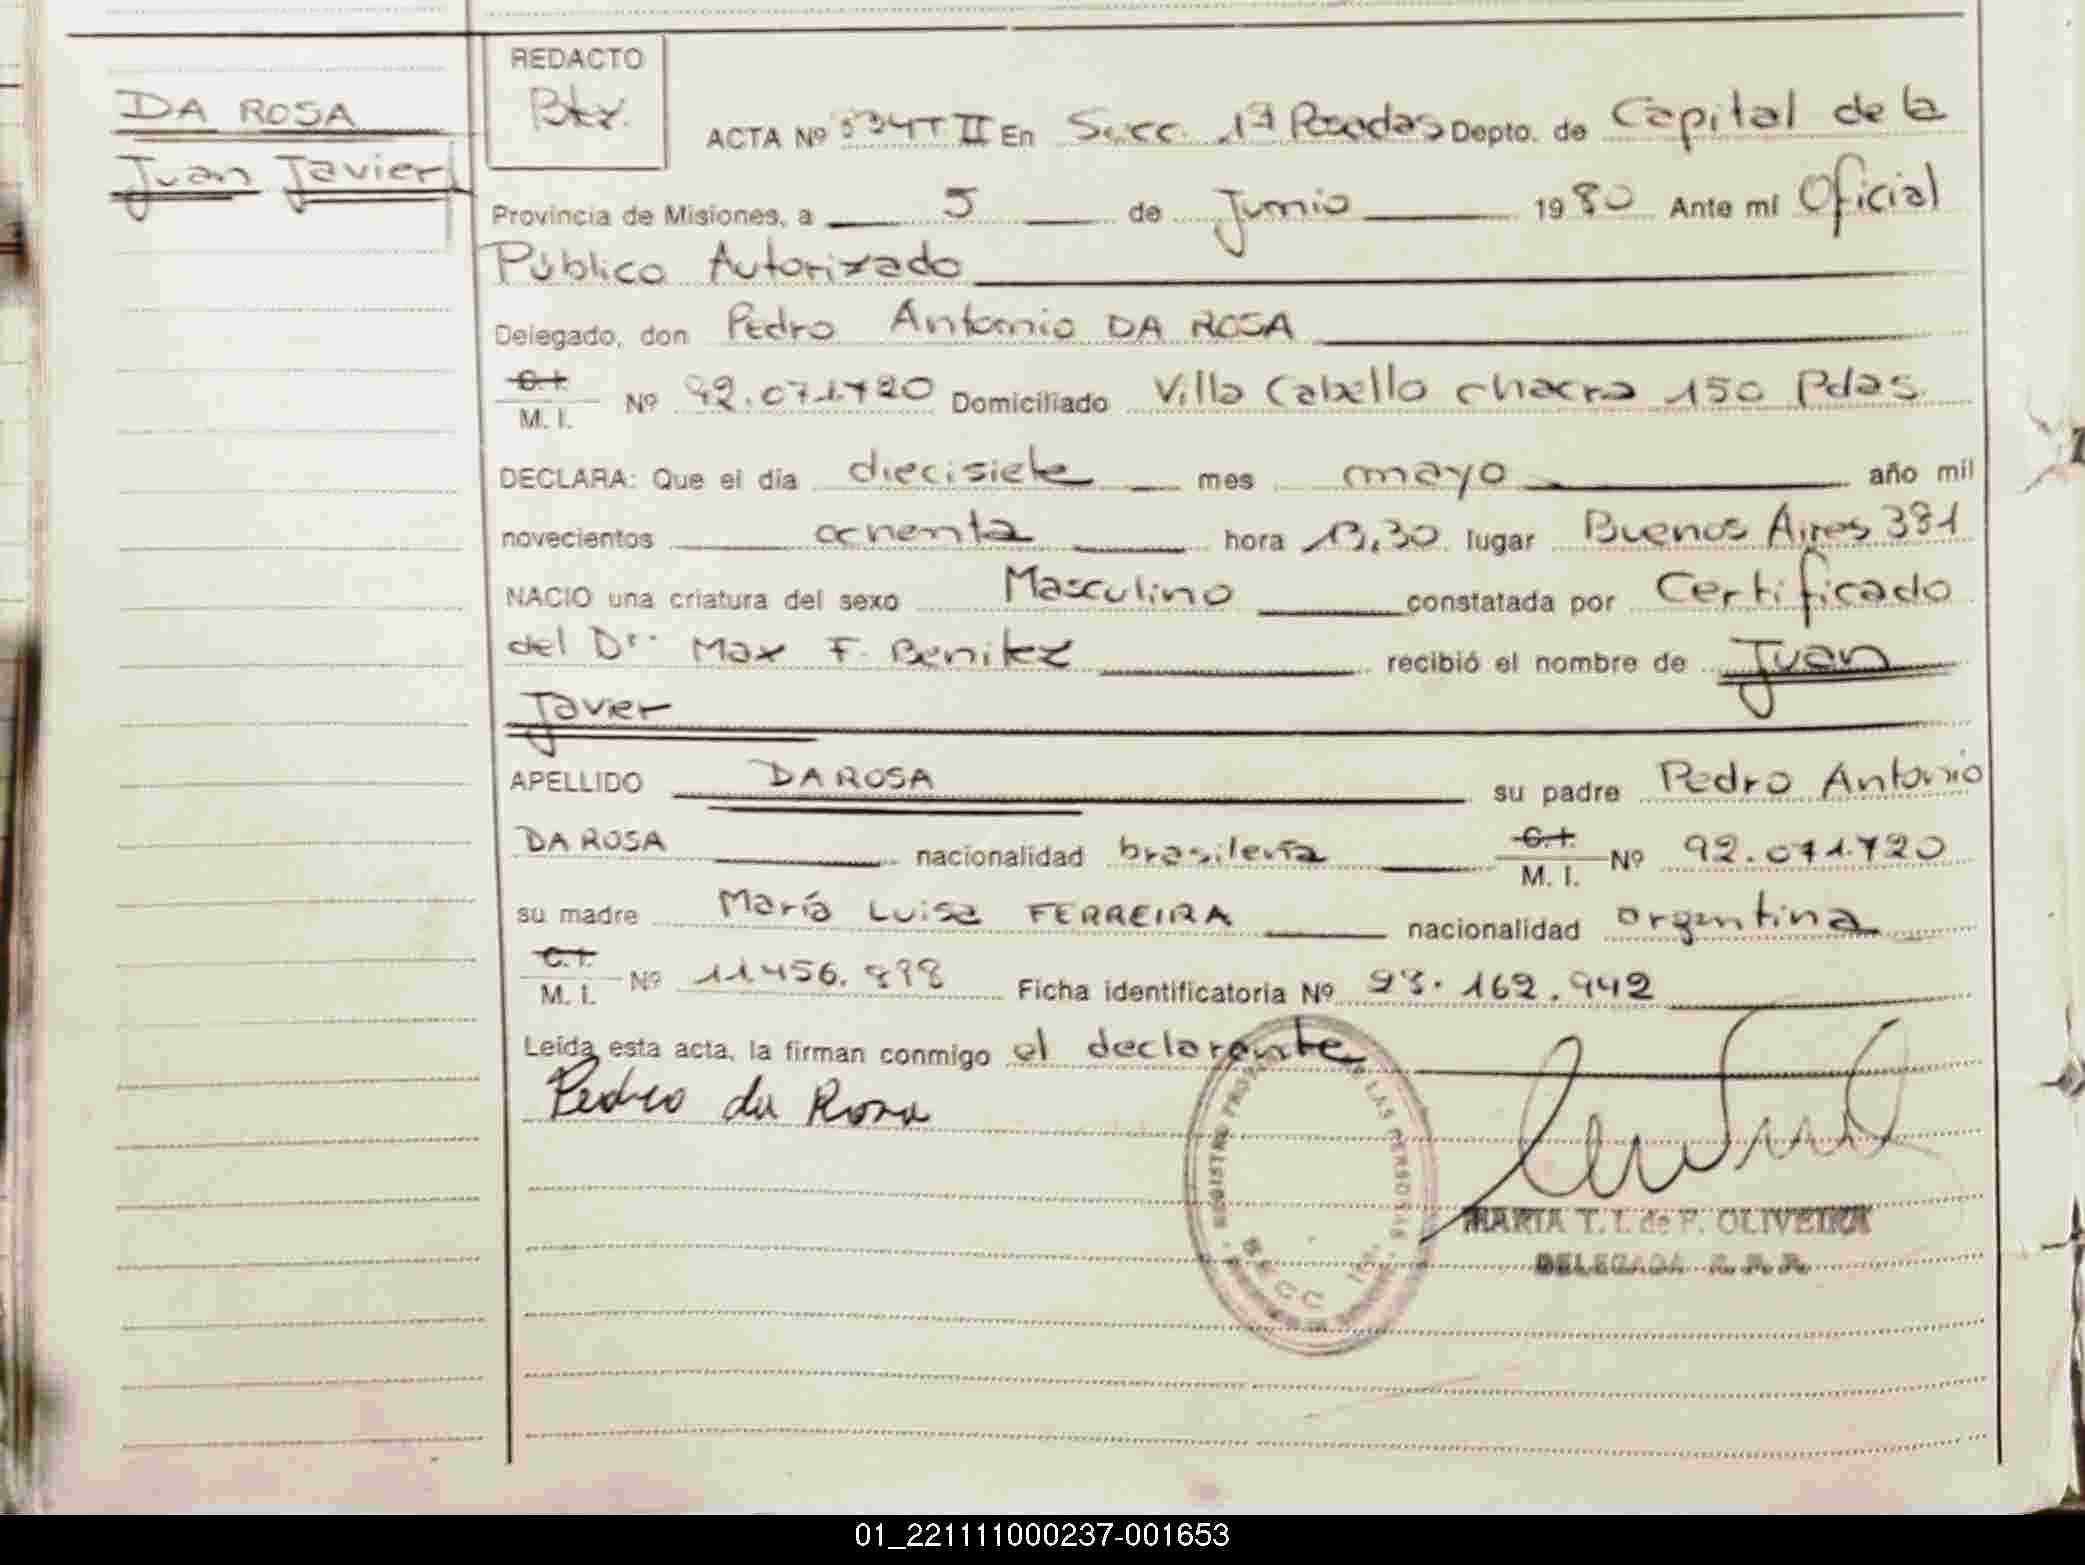 DA ROSA
Juan Javier
REDACTO
ACTA Nº 534 T II En Secc. 1ª Posadas Depto. de Capital de la
Provincia de Misiones, a 5 de Junio 1980 Ante mi Oficial
Público Autorizado
Delegado, don Pedro Antonio DA ROSA
C.I.
M. I. Nº 92.071.720 Domiciliado Villa Cabello chacra 150 Pdas.
DECLARA: Que el día diecisiete mes mayo año mil
novecientos ochenta hora 13,30 lugar Buenos Aires 381
NACIO una criatura del sexo Masculino constatada por Certificado
del Dr. Max F. Benitez recibió el nombre de Juan
Javier
APELLIDO DA ROSA su padre Pedro Antonio
DA ROSA nacionalidad brasileña C.I.
M. I. Nº 92.071.720
su madre María Luisa FERREIRA nacionalidad argentina
C.I.
M. I. Nº 11.456.898 Ficha identificatoria Nº 28.162.942
Leída esta acta, la firman conmigo el declarante
Pedro da Rosa
MARIA T. I. de F. OLIVEIRA
DELEGADA R. P. P.
01_221111000237-001653